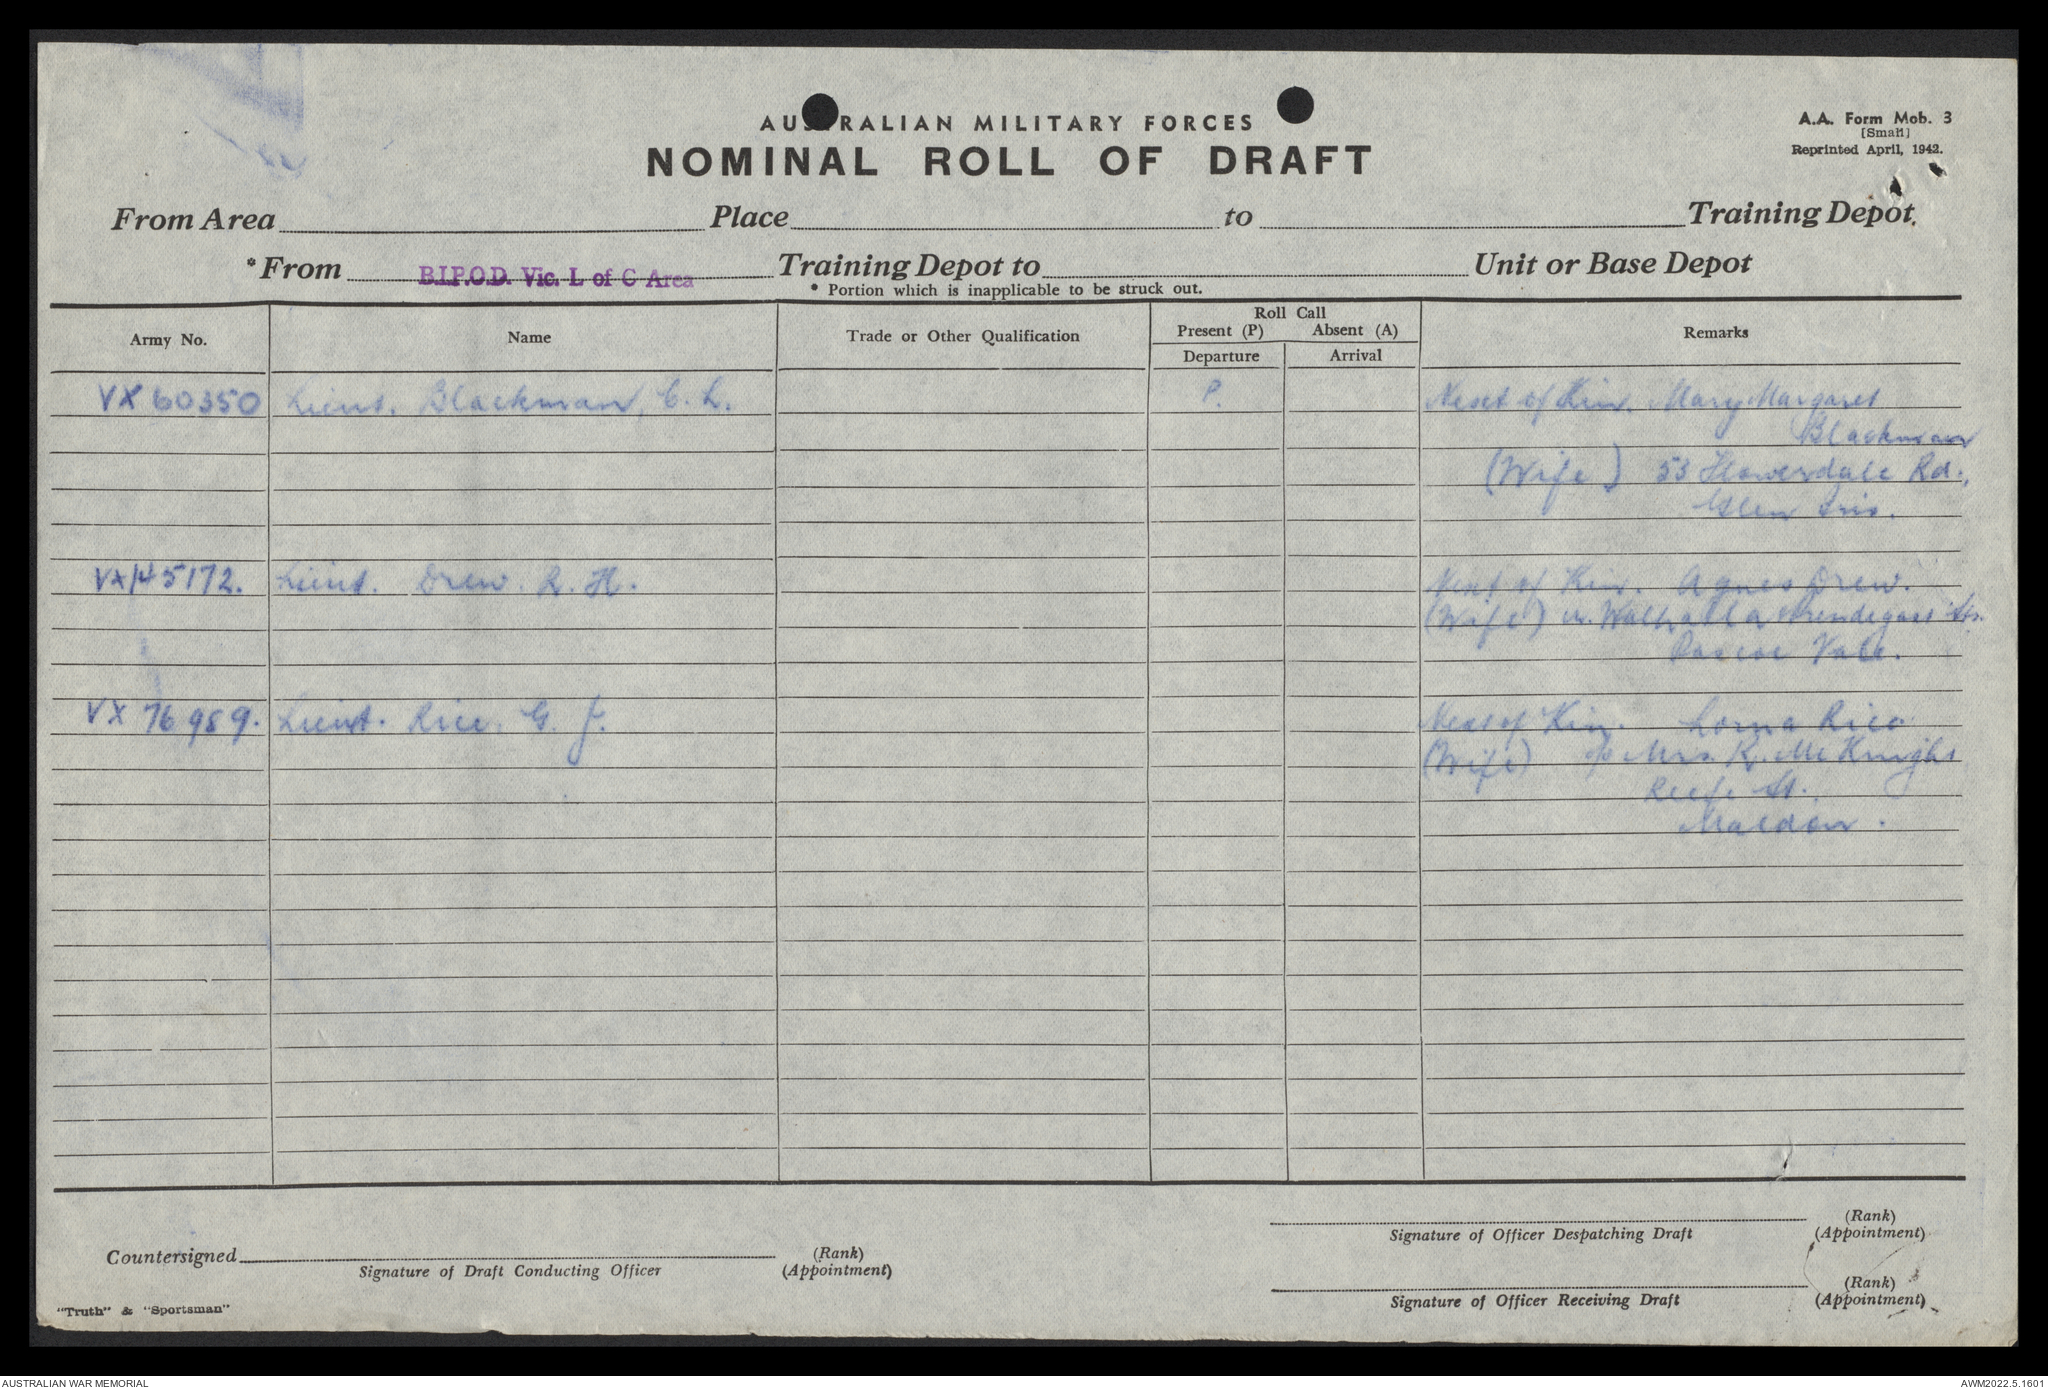 AUSTRALIAN MILITARY FORCES
NOMINAL ROLL OF DRAFT
A.A. Form Mob. 3
[Small]
Reprinted April, 1942.
From Area Place to Training Depot.
*From B.I.P.O.D. Vic. L of C Area Training Depot to Unit or Base Depot
* Portion which is inapplicable to be struck out.
Army No. Name Trade or Other Qualification Roll Call Remarks
Present (P) Absent (A)
Departure Arrival
VX 60350 Lieut. Blackman, C. L. P. Next of Kin. Mary Margaret
Blackman
(Wife) 53 Flowerdale Rd.,
Glen Iris.
VX145172. Lieut. Drew. R. H. Next of Kin. Agnes Drew.
(Wife) Walhalla Sts.
Pascoe Vale.
VX 76989. Lieut. Rice. G. J. Next of Kin. Lorna Rice
(Wife) Mrs. K. McKnight
St.
Maldon.
Countersigned (Rank)
Signature of Draft Conducting Officer (Appointment)
(Rank)
Signature of Officer Despatching Draft (Appointment)
(Rank)
Signature of Officer Receiving Draft (Appointment)
"Truth" & "Sportsman"
AUSTRALIAN WAR MEMORIAL AWM2022.5.1601